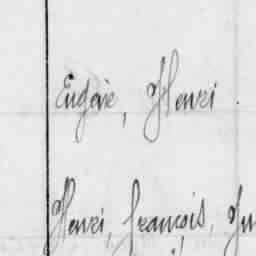 Eugène, Henri.
Henri, François, Ju